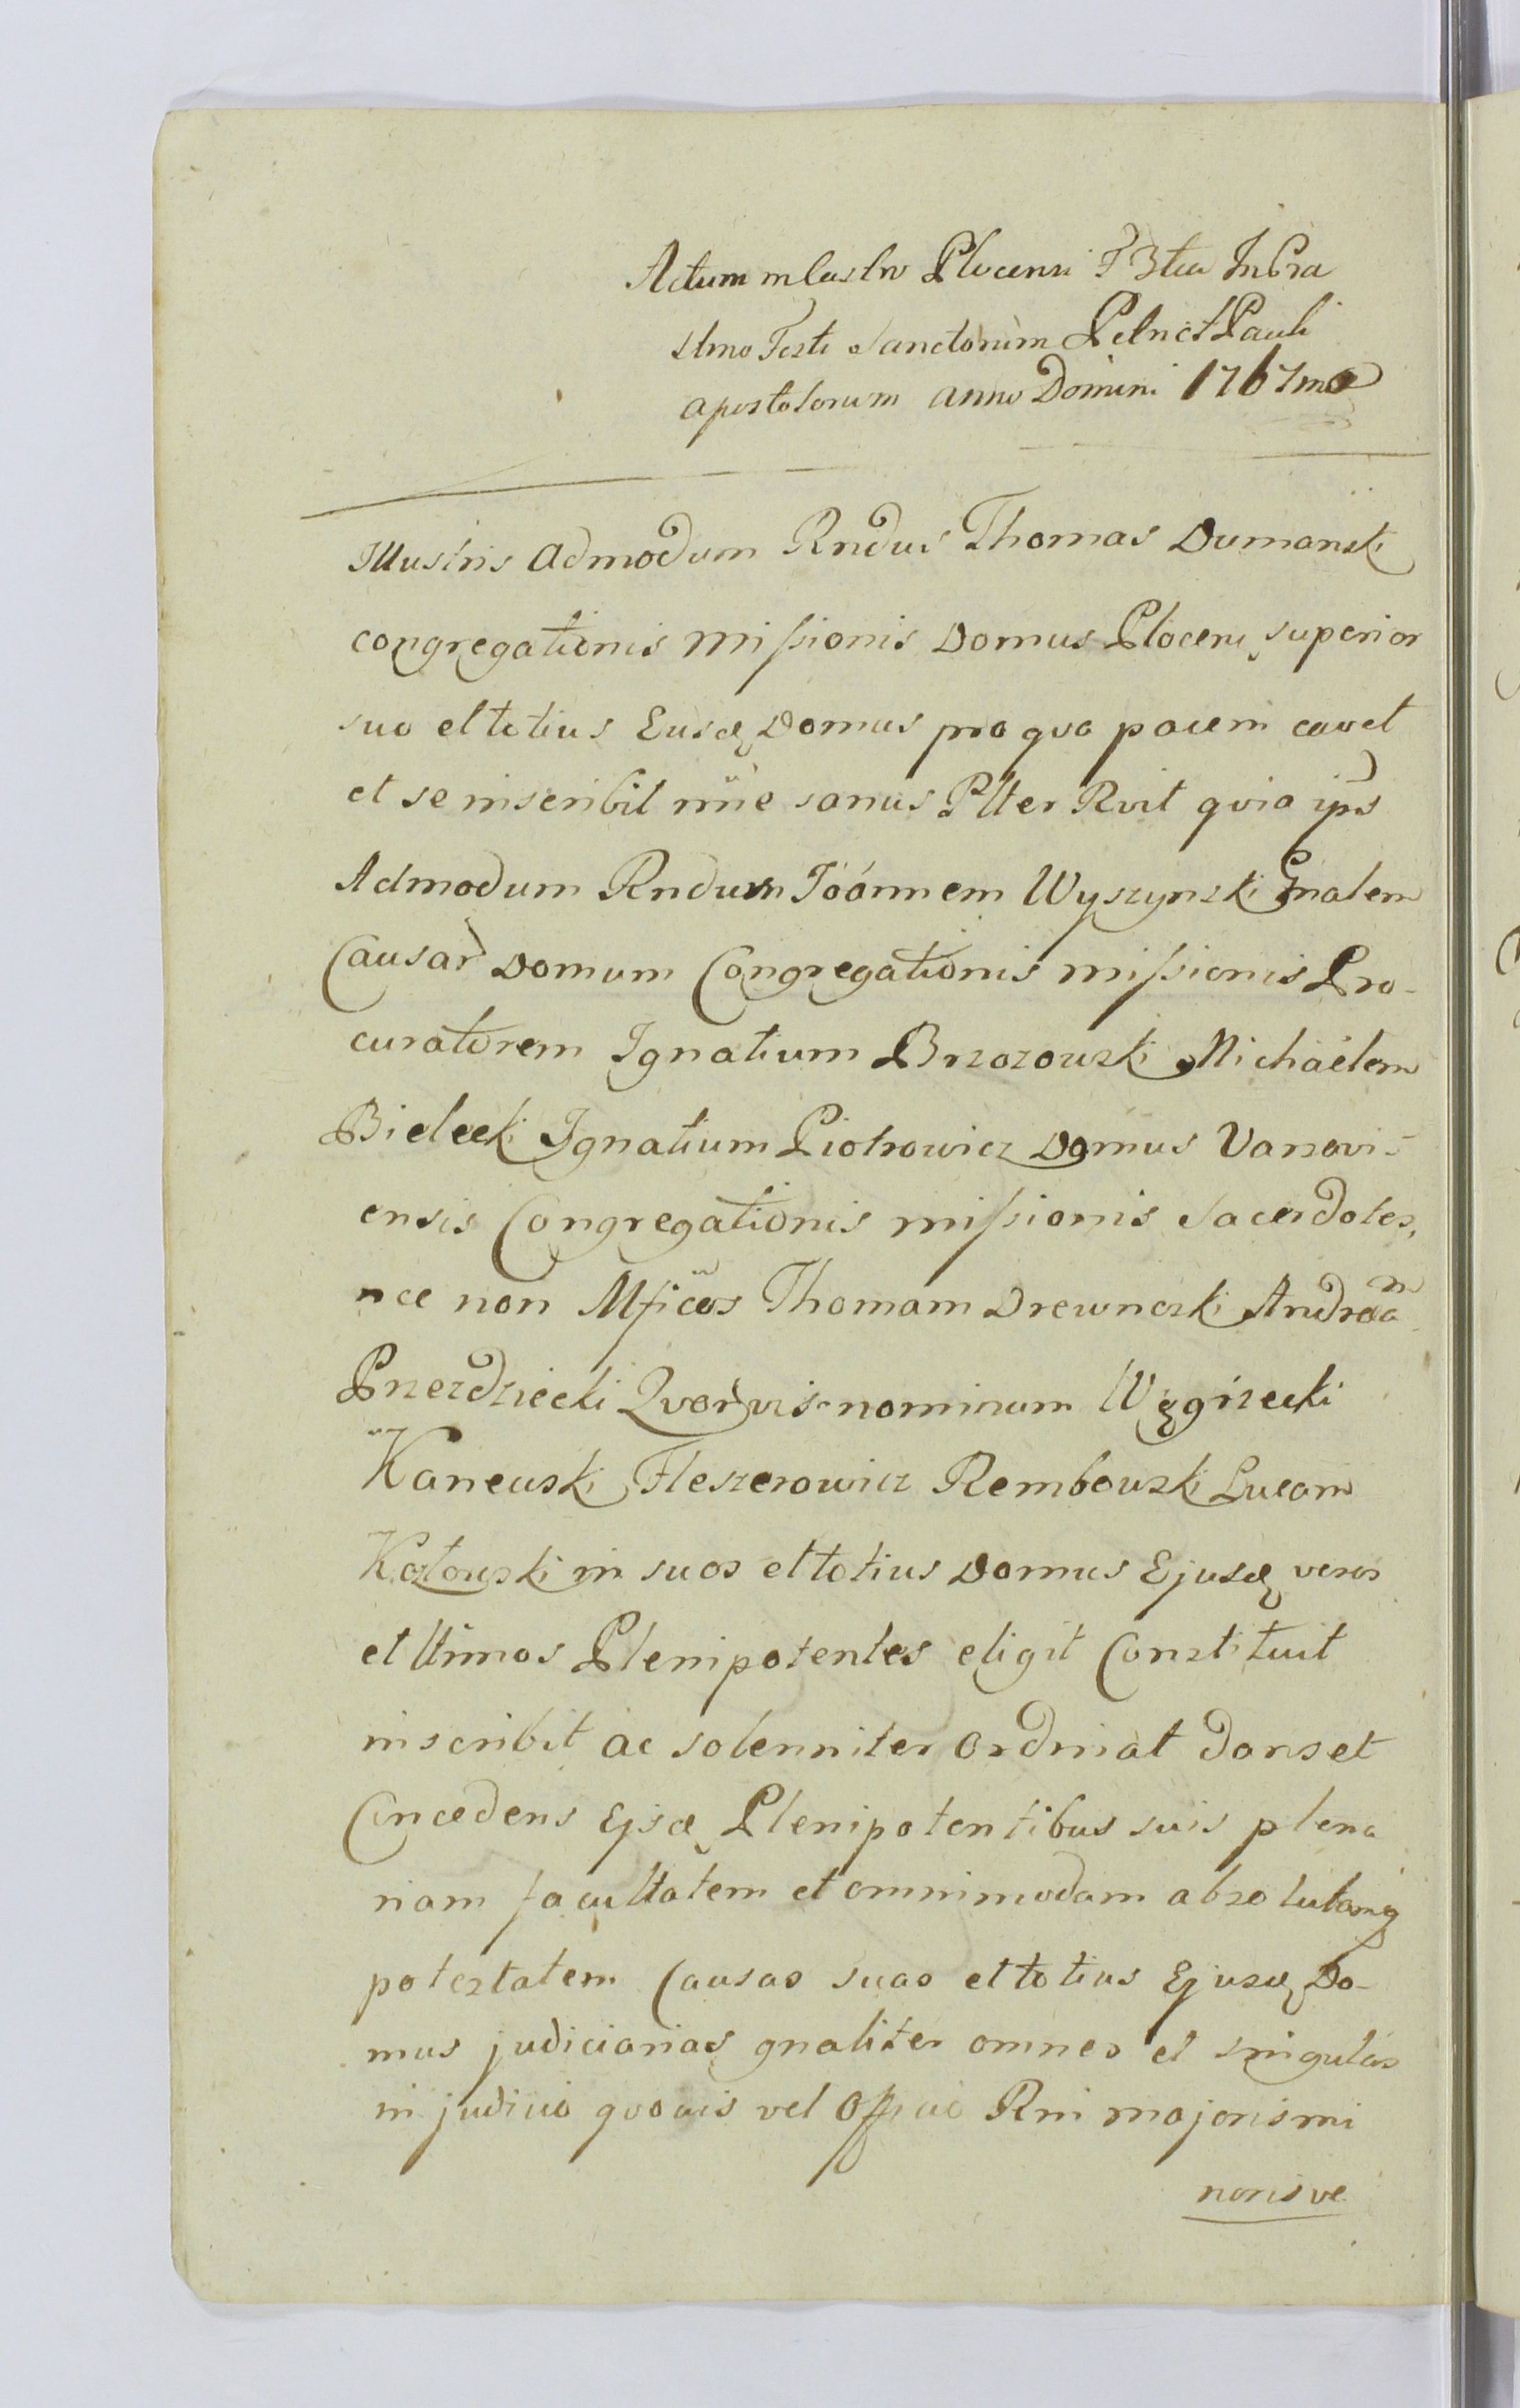 Actum in Castro Plocensi F 3tia In Cra
stino Festi Sanctorum Petri et Pauli
apostolorum anno Domini 1767mo
Illustris Admodum Rndus Thomas Dumanski
congregationis Missionis Domus Plocens superior
suo et totius Eusd Domus pro quo pacem cavet
et se inscribit nñe sanus Ptter Rvit quia ips
Admodum Rndum Joannem Wyszynski Gnalem
Causar Domum Congregationis missionis Pro-
curatorem Ignatium Brzozowski Michaelem
Bielecki Ignatium Piotrowicz Domus Varsavi-
ensis Congregationis missionis Sacerdotes,
nec non Mficos Thomam Drewnoski Andream
Przezdziecki Quorvis nominum Węgrzecki
Kanewski Fleszerowicz Rembowski Lucam
Kozłowski in suos et totius Domus Ejusd veros
et lttimos Plenipotentes eligit Constituit
inscribit ac solenniter Ordinat Dans et
Concedens Ejsd Plenipotentibus suis plena
riam facultatem et omnimodam absolutamq
potestatem Causas suas et totius Ejusd Do-
mus judiciarias gnaliter omnes et singulas
in judicio quovis vel Officio Rni majoris mi
norisve